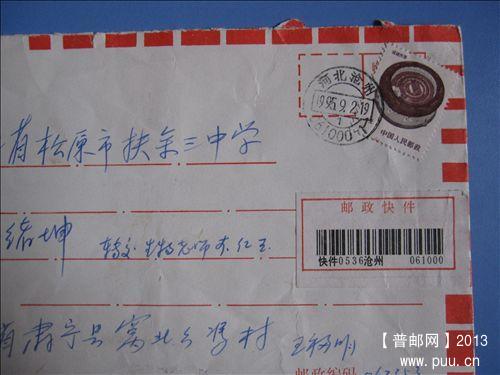 河北沧州
1995.9.2.19
1
061000
中国人民邮政
省松原市扶余三中学
绪坤 转交 生物老师
邮政快件
快件0536沧州 061000
省肃宁县窝北乡 村 王
邮政编码
【普邮网】2013
www.puu.cn